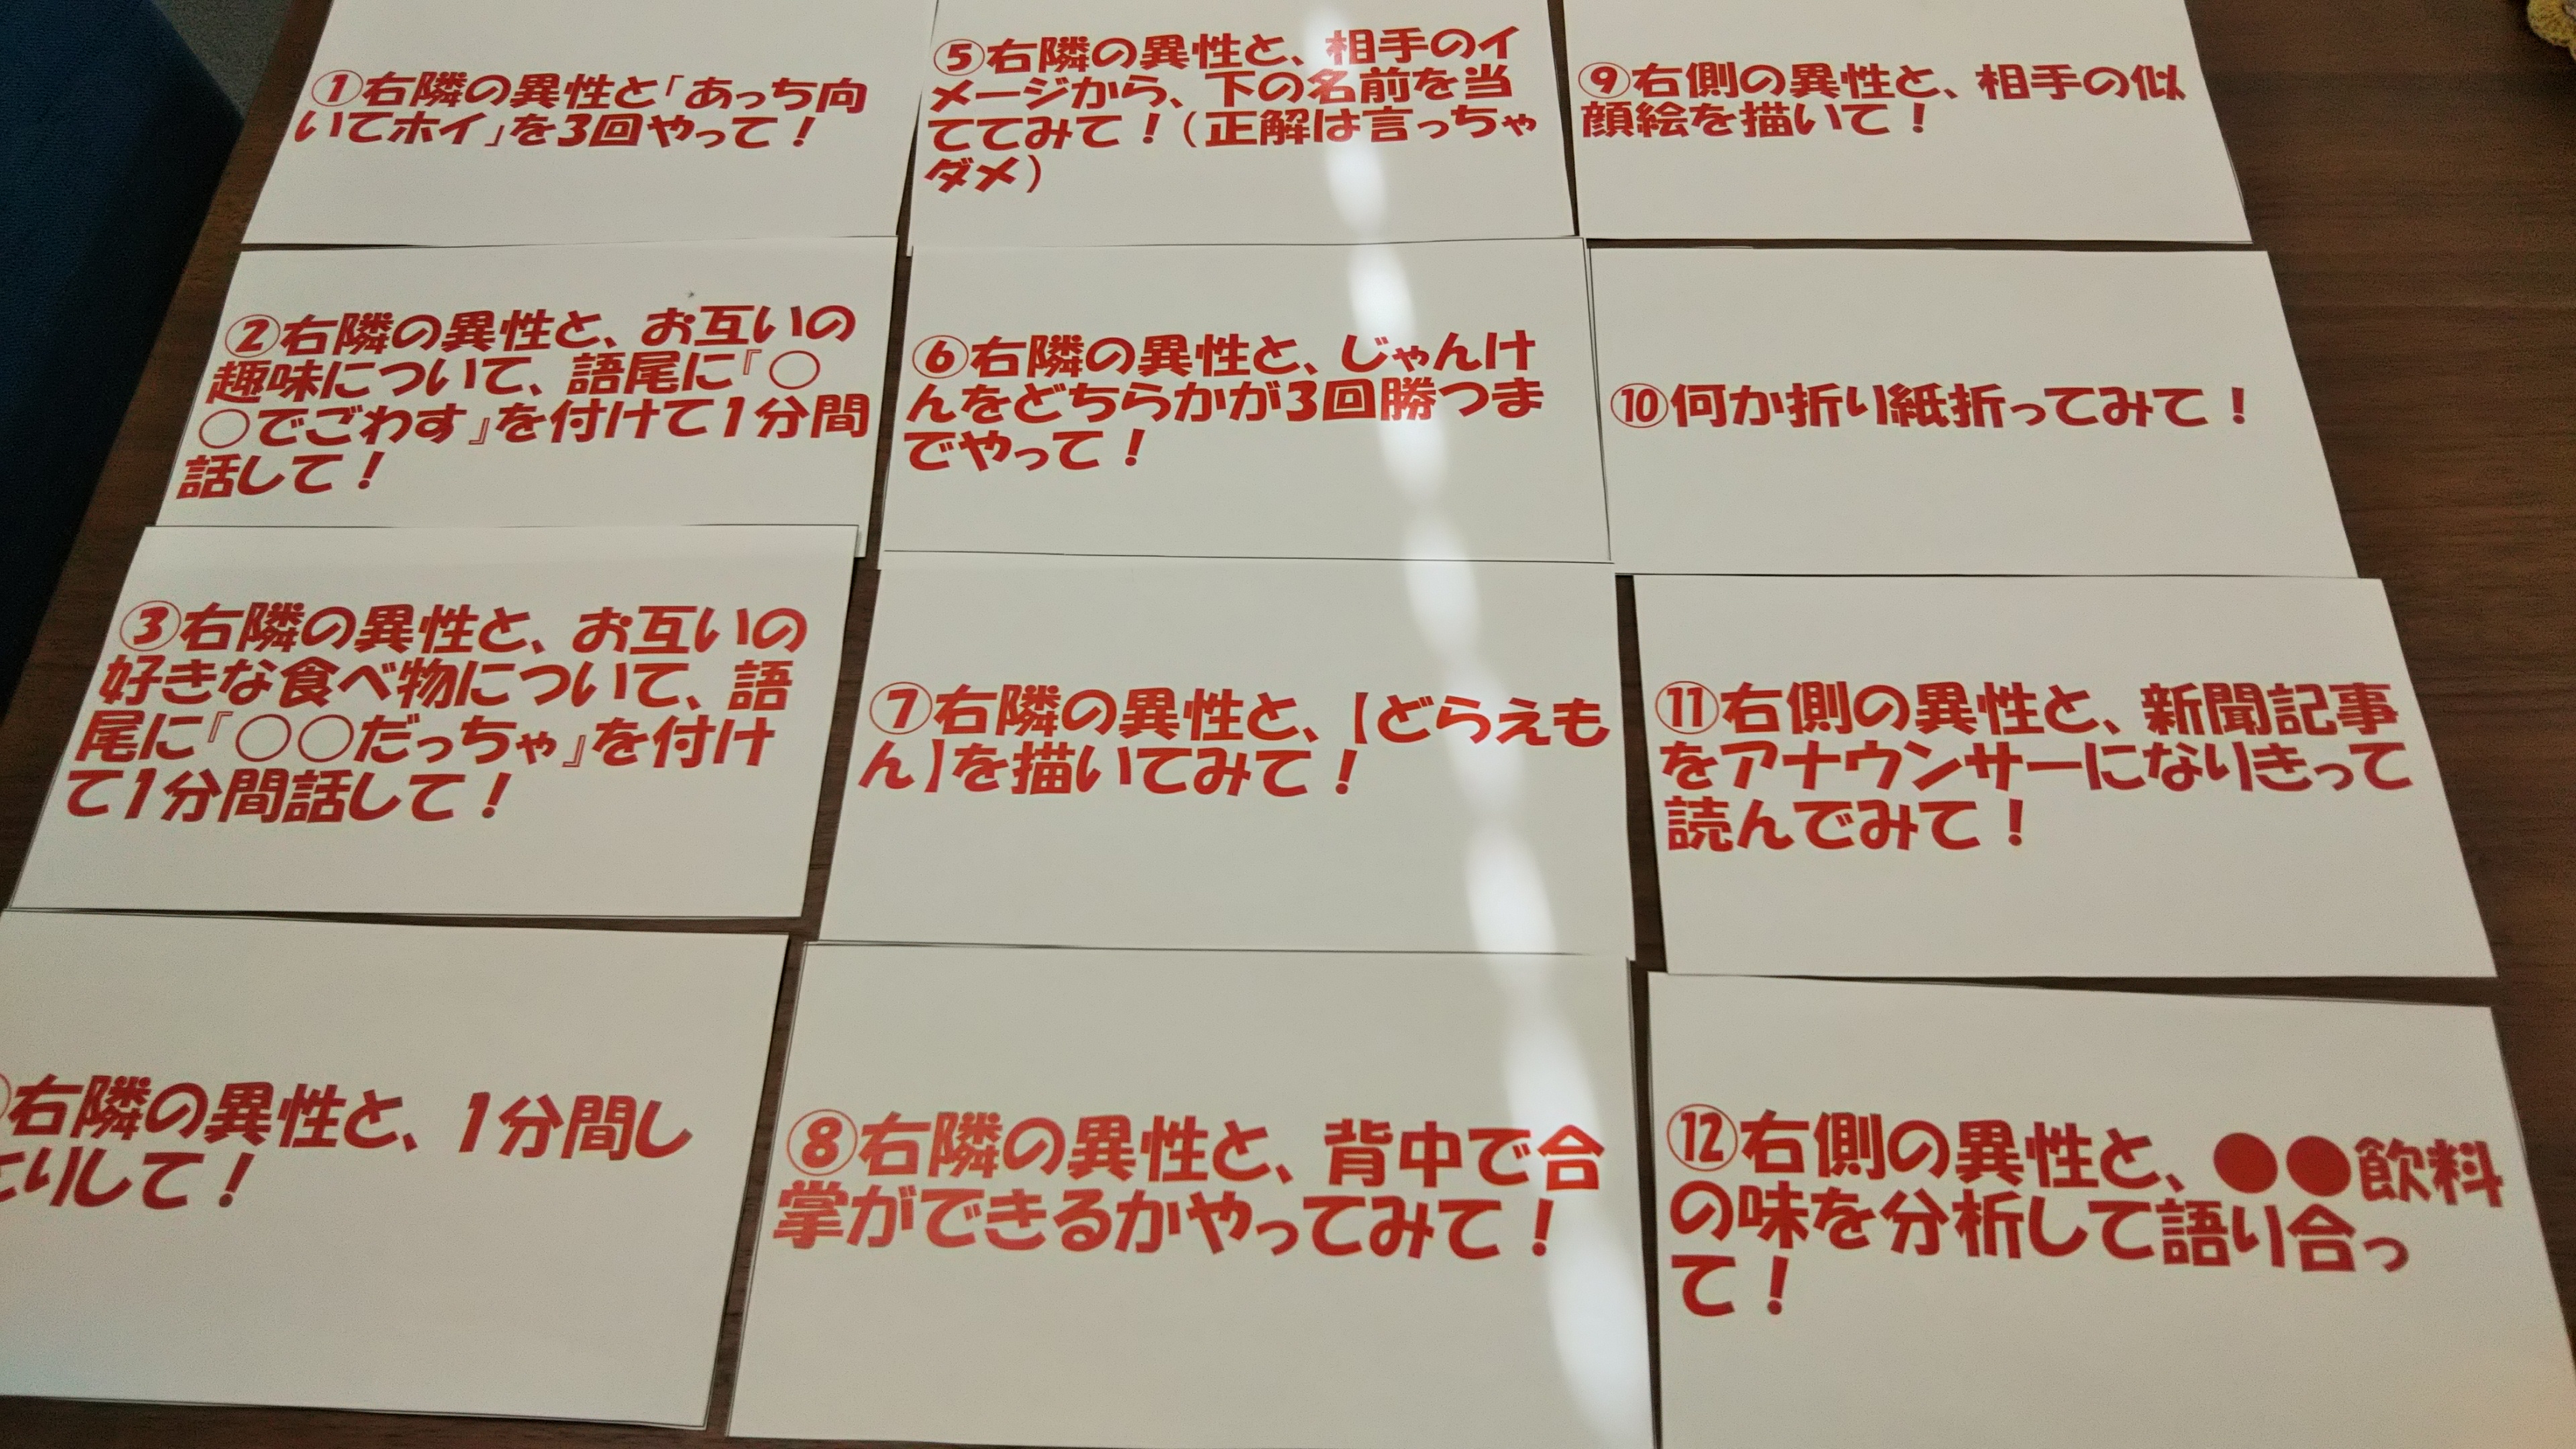 ①右隣の異性と「あっち向
いてホイ」を3回やって！
②右隣の異性と、お互いの
趣味について、語尾に『○
○でごわす』を付けて1分間
話して！
③右隣の異性と、お互いの
好きな食べ物について、語
尾に『○○だっちゃ』を付け
て1分間話して！
右隣の異性と、1分間し
とりして！
⑤右隣の異性と、相手のイ
メージから、下の名前を当
ててみて！（正解は言っちゃ
ダメ）
⑥右隣の異性と、じゃんけ
んをどちらかが3回勝つま
でやって！
⑦右隣の異性と、【どらえも
ん】を描いてみて！
⑧右隣の異性と、背中で合
掌ができるかやってみて！
⑨右側の異性と、相手の似
顔絵を描いて！
⑩何か折り紙折ってみて！
⑪右側の異性と、新聞記事
をアナウンサーになりきって
読んでみて！
⑫右側の異性と、●●飲料
の味を分析して語り合っ
て！